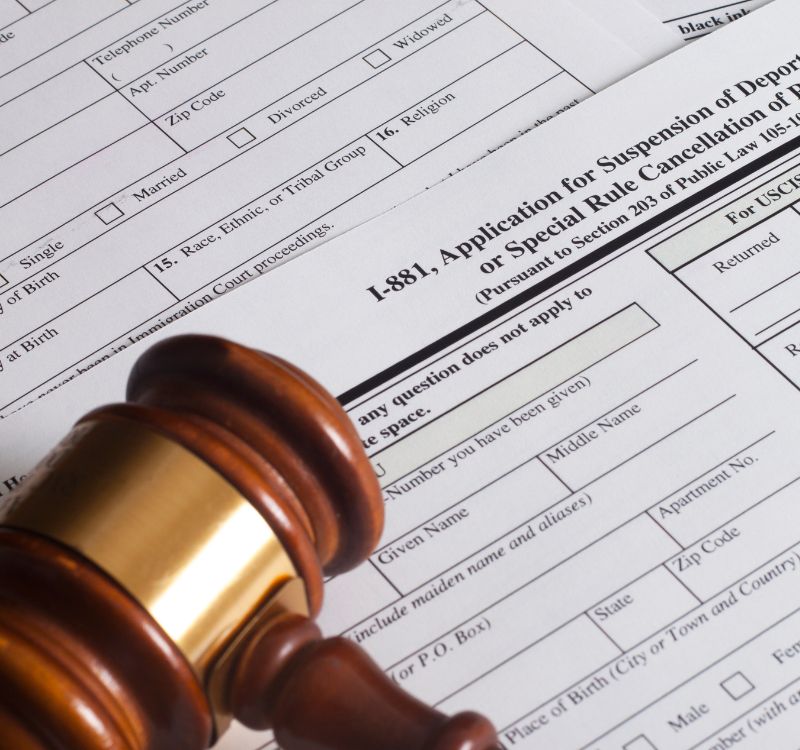 Telephone Number
( )
Apt. Number
Zip Code
Widowed
Divorced
Married
Single
16. Religion
15. Race, Ethnic, or Tribal Group
of Birth
at Birth
never been in Immigration Court proceedings.
have been in the past
black ink
I-881, Application for Suspension of
or Special Rule Cancellation of
(Pursuant to Section 203 of Public Law
For USCIS
Returned
any question does not apply to
space.
Number you have been given)
Given Name
Middle Name
include maiden name and aliases)
Apartment No.
(or P.O. Box)
State
Zip Code
Place of Birth (City or Town and Country)
Male